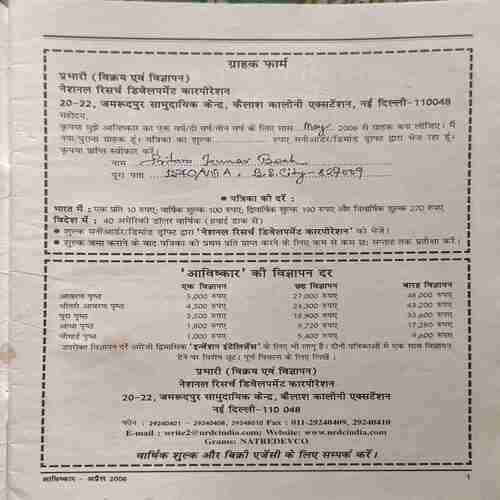 ग्राहक फार्म
प्रभारी (विक्रय एवं विज्ञापन)
नेशनल रिसर्च डिवेलपमेंट कारपोरेशन
20-22, जमरूदपुर सामुदायिक केन्द्र, कैलाश कालोनी एक्सटेंशन, नई दिल्ली-110048
महोदय,
कृपया मुझे आविष्कार का एक वर्ष/दो वर्ष/तीन वर्ष के लिए मास May 2006 से ग्राहक बना लीजिए। मैं
नया/पुराना ग्राहक हूं। पत्रिका का शुल्क रुपए मनीआर्डर/डिमांड ड्राफ्ट द्वारा भेज रहा हूं।
कृपया प्राप्ति स्वीकार करें।
नाम Kumar
पूरा पता B.S.City-827009
● पत्रिका की दरें :
भारत में : एक प्रति 10 रुपए; वार्षिक शुल्क 100 रुपए; द्विवार्षिक शुल्क 190 रुपए और त्रिवार्षिक शुल्क 270 रुपए
विदेश में : 40 अमेरिकी डॉलर वार्षिक (हवाई डाक से)
● शुल्क मनीआर्डर/डिमांड ड्राफ्ट द्वारा 'नेशनल रिसर्च डिवेलपमेंट कारपोरेशन' को भेजें।
● शुल्क जमा कराने के बाद पत्रिका की प्रथम प्रति प्राप्त करने के लिए कम से कम छः सप्ताह तक प्रतीक्षा करें।
'आविष्कार' की विज्ञापन दर
एक विज्ञापन छह विज्ञापन बारह विज्ञापन
आवरण पृष्ठ 5,000 रुपए 27,000 रुपए 48,000 रुपए
भीतरी आवरण पृष्ठ 4,500 रुपए 24,300 रुपए 43,200 रुपए
पूरा पृष्ठ 3,500 रुपए 18,900 रुपए 33,600 रुपए
आधा पृष्ठ 1,800 रुपए 9,720 रुपए 17,280 रुपए
चौथाई पृष्ठ 1,000 रुपए 5,400 रुपए 9,600 रुपए
उपरोक्त विज्ञापन दरें अंग्रेजी द्विमासिक 'इन्वेंशन इंटेलिजेंस' के लिए भी लागू हैं। दोनों पत्रिकाओं में एक साथ विज्ञापन
देने पर विशेष छूट। पूर्ण विवरण के लिए लिखें।
प्रभारी (विक्रय एवं विज्ञापन)
नेशनल रिसर्च डिवेलपमेंट कारपोरेशन
20-22, जमरूदपुर सामुदायिक केन्द्र, कैलाश कालोनी एक्सटेंशन
नई दिल्ली-110 048
फोन : 29240401 - 29240408, 29248010 Fax : 011-29240409, 29240410
E-mail : write2@nrdcindia.com; Website: www.nrdcindia.com
Grams: NATREDEVCO
वार्षिक शुल्क और बिक्री एजेंसी के लिए सम्पर्क करें।
आविष्कार - अप्रैल 2006 1